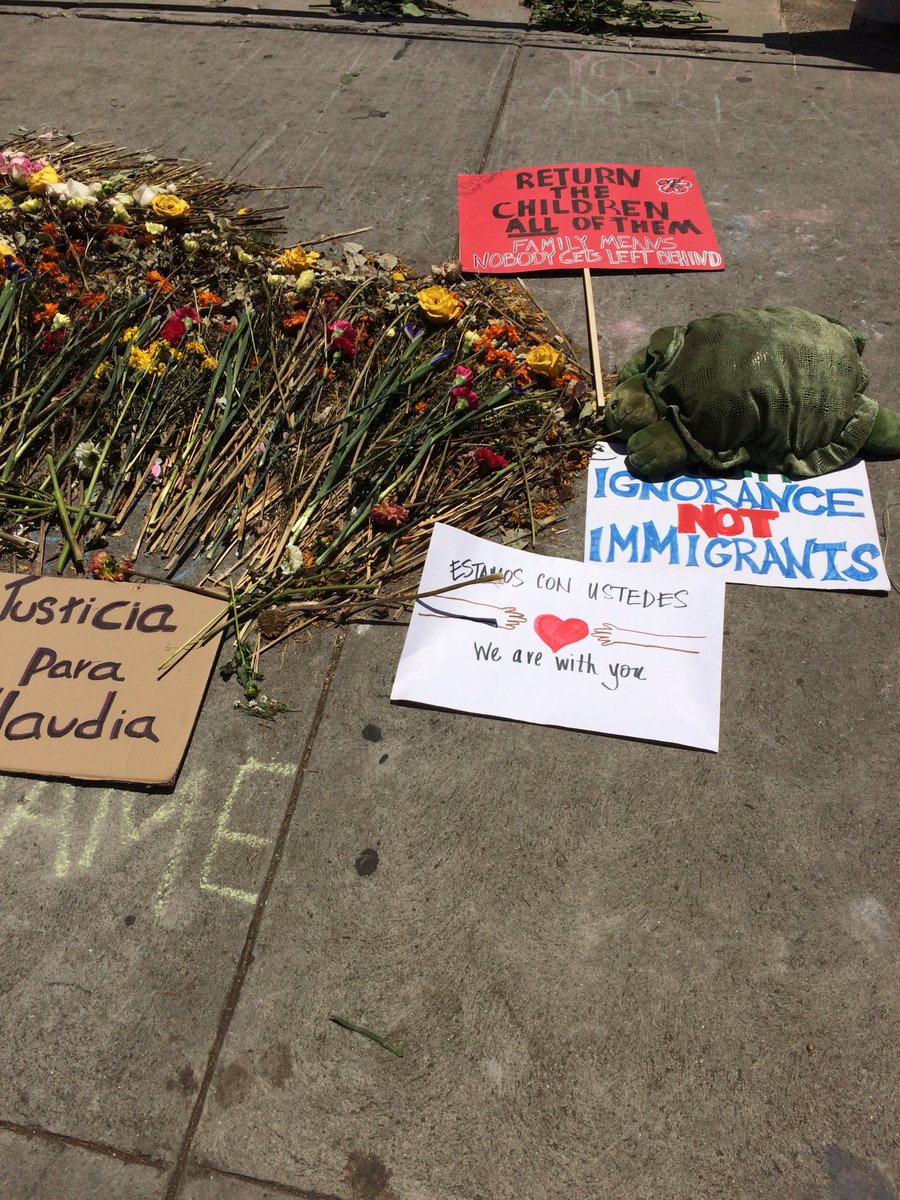 YOU
AMERICA
RETURN
THE
CHILDREN
ALL OF THEM
FAMILY MEANS
NOBODY GETS LEFT BEHIND
IGNORANCE
NOT
IMMIGRANTS
ESTAMOS CON USTEDES
We are with you
Justicia
para
Klaudia
AME